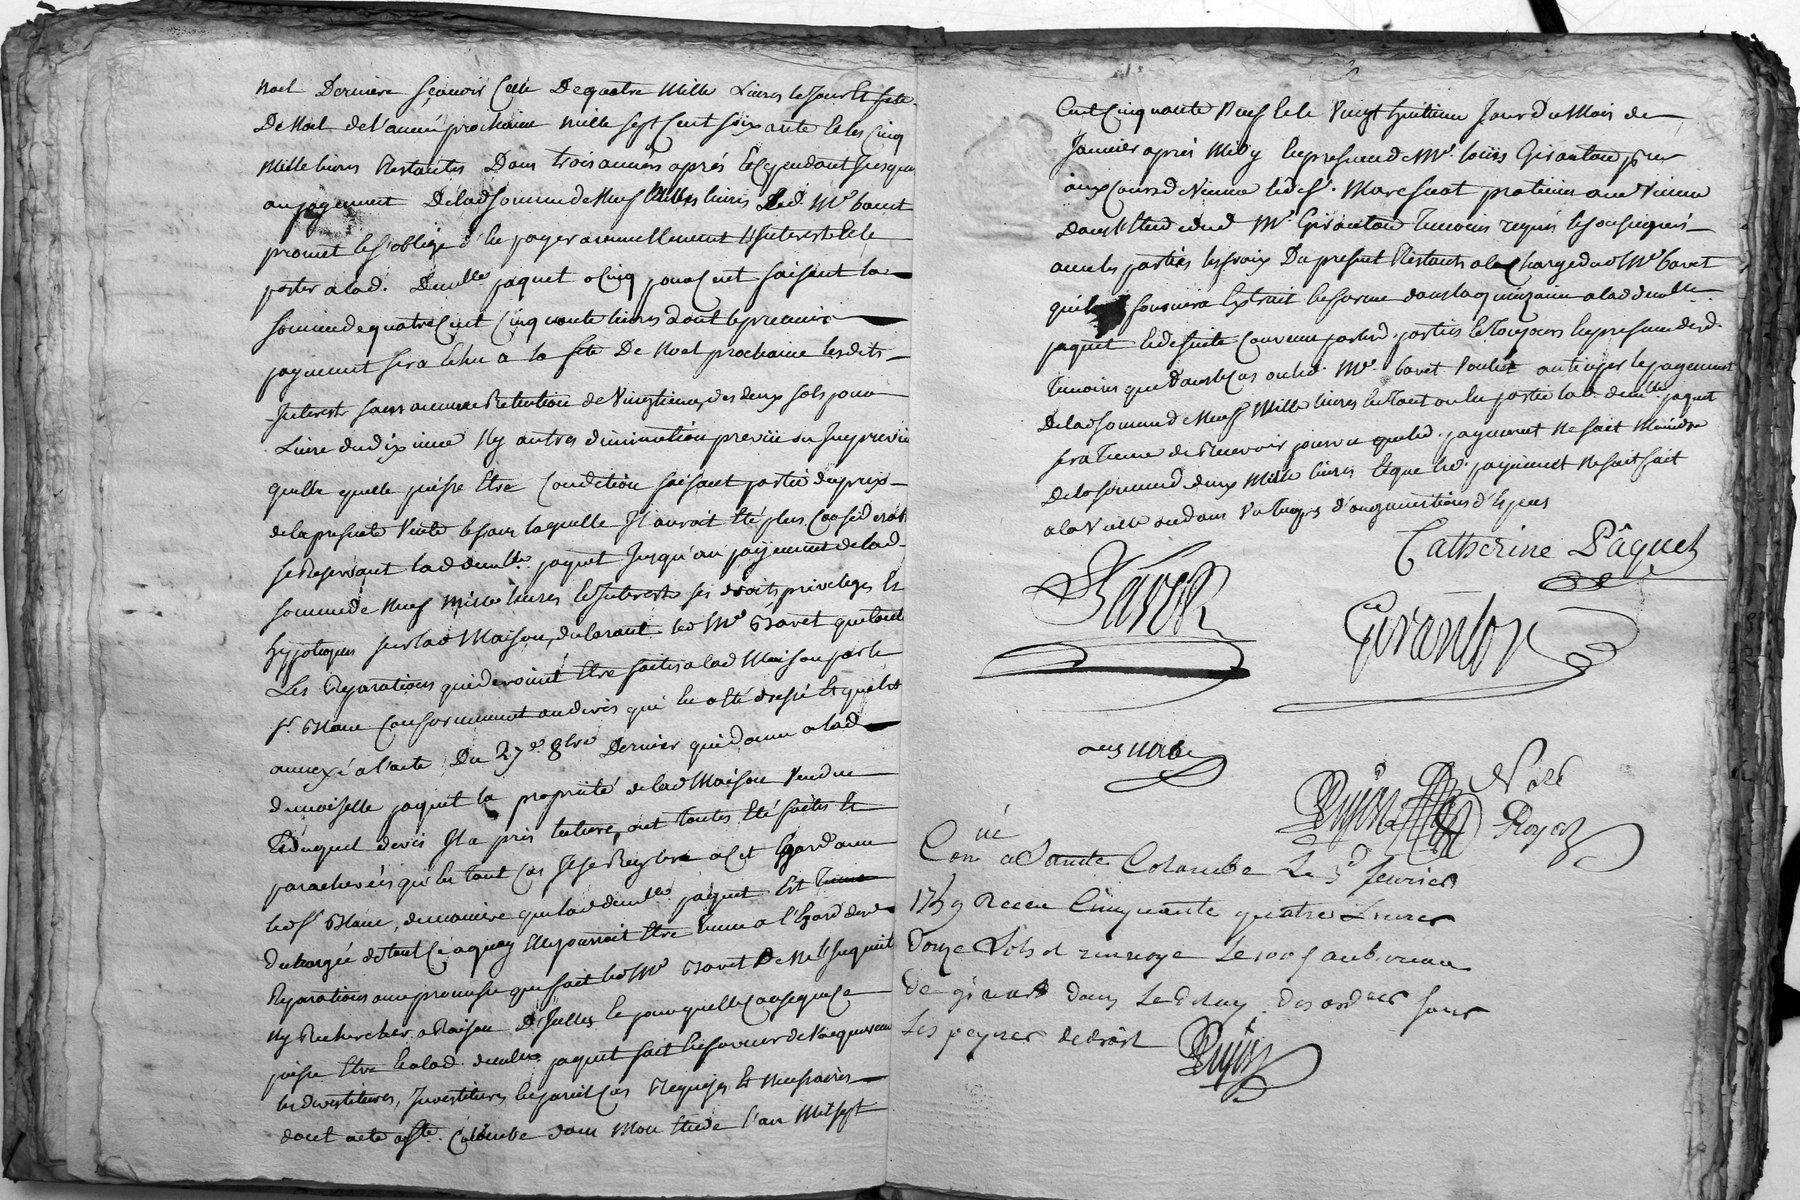 Noel Derniere sçavoir Celle De quatre Mille Livres le Jour et feste
De Noel de l'année prochaine mille sept Cent soixante et les Cinq
Mille livres Restantes Dans trois années après et Cependant Jusqu'au
au payement De lad somme de Neuf Mille livres led. Me bavet
promet et s'oblige d'en payer annuellement l'Interest et le
porter a lad. Demlle paquet a Cinq pour Cent faisant la
somme de quatre Cent Cinquante livres dont le premier
payement sera échu a la fete De Noel prochaine lesdits
Interest sans aucune Retention de Vingtieme, des deux sols pour
Livre du dixieme Ny autres diminution preveüe ou Impreveüe
quelle quelle puisse Etre Condition faisant partie du prix
de la presente Vente et sans laquelle Il auroit été plus Considerable
se Reservant lad demlle paquet Jusqu'au payement de lad
somme de Neuf Mille livres et Interest ses droits privileges et
hypoteques sur lad Maison, declarant led Me Bavet que toutes
Les Reparations qui devoient Etre faites a lad Maison par le
sr. Blanc Conformement au devis qui en a été dressé et qui est
annexé a l'acte Du 27e 8bre Dernier qui donne a lad
demoiselle paquet la proprieté de lad Maison Vendue
Et duquel devis Il a pris lecture, ont toutes été faites et
parachevées qu'en tout Cas Il se Regleroit a Cet Egard avec
led sr Blanc, de maniere que lad demlle paquet Est Tenue
dechargée de tout Ce a quoy Elle pourroit Etre tenue a l'Egard desd
Reparations avec promesse que fait led Me Bavet De ne l'Inquieter
Ny Rechercher a Raison D'Icelles et pour quelle Consequence
puisse Etre et a lad. demlle paquet fait en faveur de l'acquereur
les devestitures, Investitures en pareil Cas Requises et Necessaires
dont acte a Ste. Colombe dans Mon Etude l'an Mil sept
Cent Cinquante Neuf et le Vingt huitieme Jour du Mois de
Janvier après Midy En presence de Me. louis Giranton pr es
aux Cours de Vienne et de sr. Mare praticien aud Vienne
dans l'Etude dud Me. Girantou Temoins requis et soussignés
avec les parties les fraix Du present Restants a la Charge dud Me bavet
qu'il fournira Extrait En forme dans la quinzaine a lad demlle
paquet et de suite Convenu par lesd. parties et Toujours En presence desd.
Temoins que dans le Cas ou led. Me. bavet Voulut anticiper le payement
De lad somme de Neuf Mille livres En Tout ou En partie lad. demlle paquet
sera Tenue de Recevoir pourvu que led. payement Ne soit Moindre
de la somme de deux Mille livres Et que led. payement Ne soit fait
a la Veille ou dans Un temps d'augmentations d'Especes
Catherine Pâquet
Bavet
Girantou
Pujos Nore
Royal
Con né a Sainte Colombe Le 3e fevrier
1759 Receu Cinquante quatre Livres
Douze sols Et renvoyé Le 100e au bureau
de givors dans Le Delay des ordces sous
Les peynes de droit
Pujos